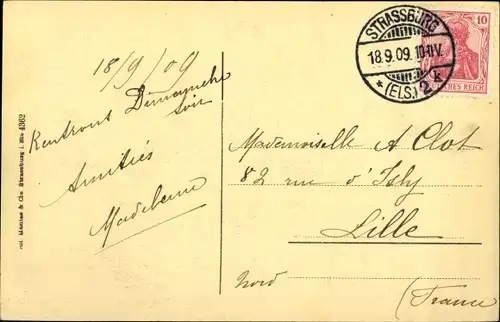 18/9/09
Rentrons Dimanche
soir
Amitiés
Madeleine
STRASSBURG
18.9.09. 10-11V.
* (ELS.) 2 k
10
DEUTSCHES REICH
Mademoiselle A Clot
82 rue d'Isly
Lille
Nord
(France)
& Cie Strassburg i. Els 4362